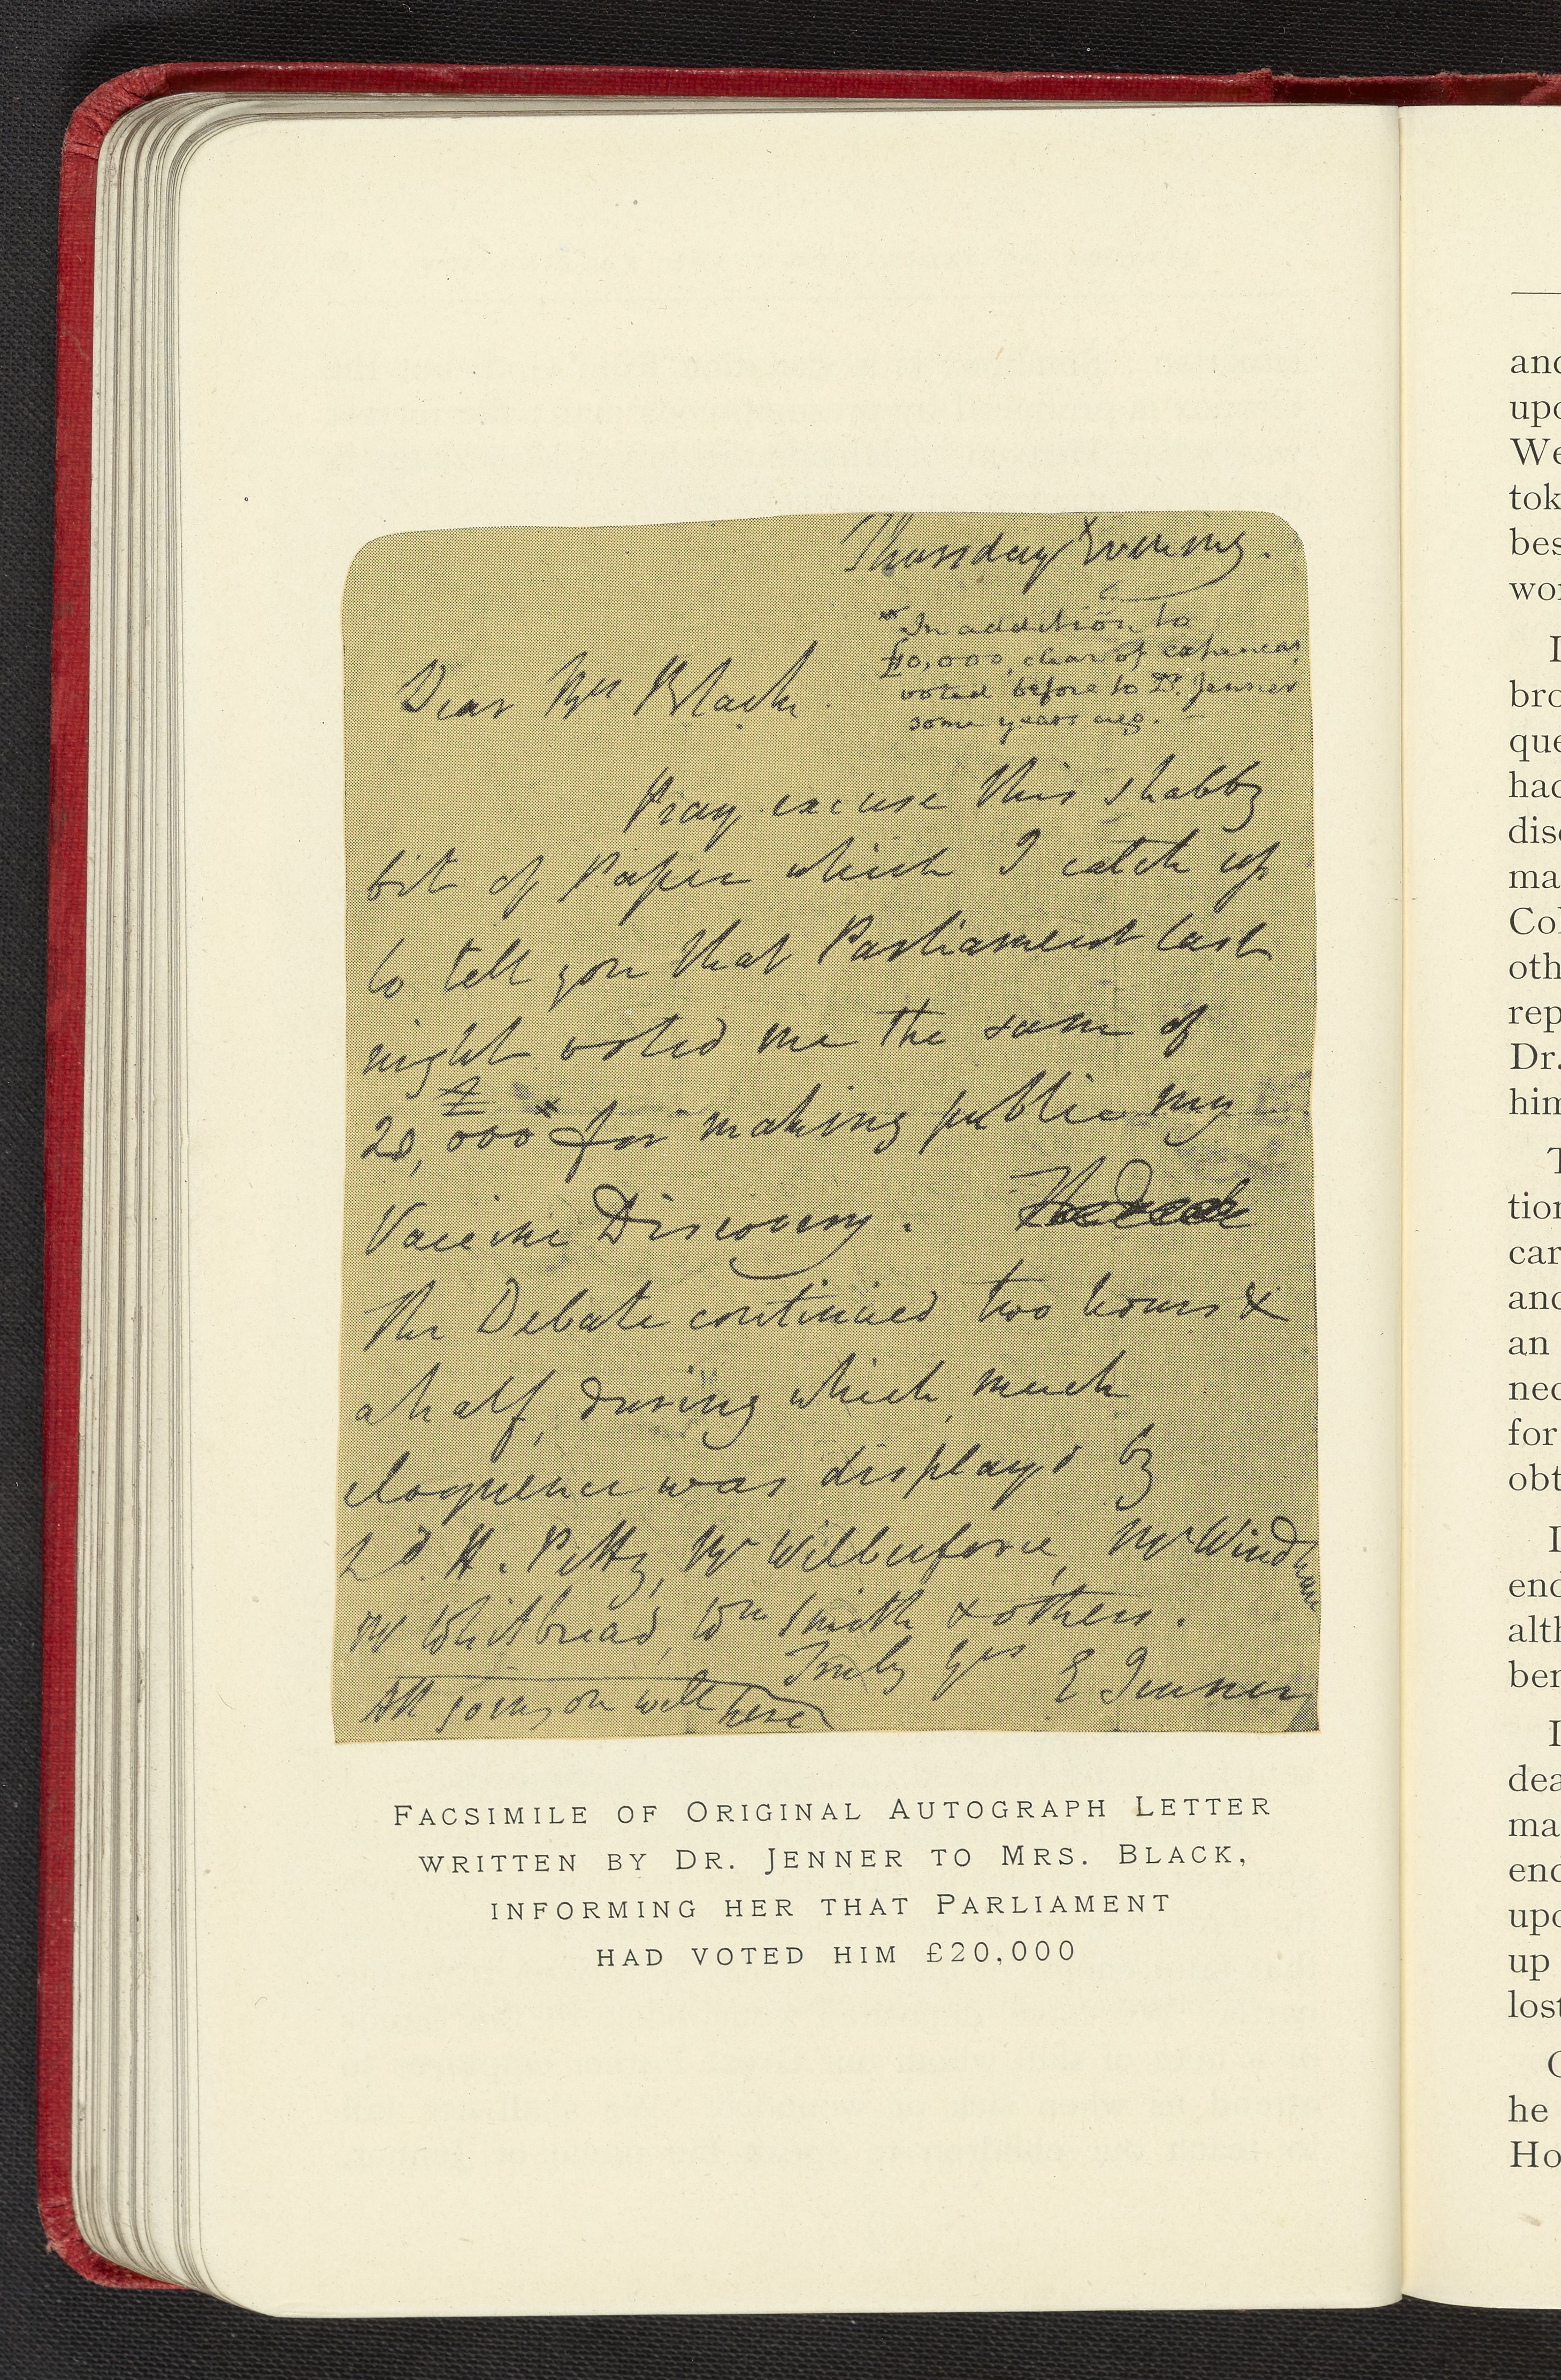 Thursday Evening.
*In addition to
£10,000, clear of expences,
voted before to Dr. Jenner
some years ago. —
Dear Mrs Black.
Pray excuse this shabby
bit of Paper which I catch up
to tell you that Parliament last
night voted me the sum of
£
20,000* for making public my
Vaccine Discovery.
The Debate continued two hours &
a half, during which much
eloquence was display'd by
Ld. H. Petty, Mr Wilberforce, Mr Windham
Mr Whitbread, Wm Smith & others.
Truly Yrs E Jenner
All going on well here
FACSIMILE OF ORIGINAL AUTOGRAPH LETTER
WRITTEN BY DR. JENNER TO MRS. BLACK,
INFORMING HER THAT PARLIAMENT
HAD VOTED HIM £20,000
and
upo
We
tok
bes
wor
I
bro
que
had
disc
ma
Col
oth
rep
Dr.
him
T
tion
car
and
an
nec
for
obt
I
end
alth
ben
I
dea
ma
end
upo
up
lost
C
he
Ho